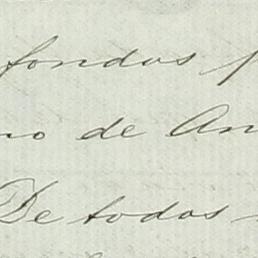 fondos
no de An
De todos